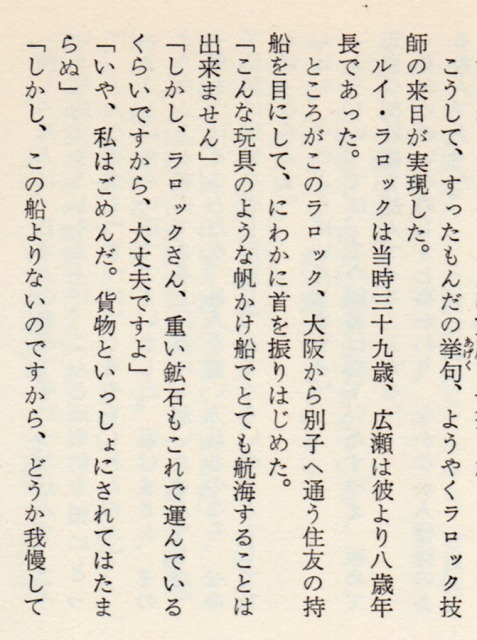 こうして、すったもんだの挙句、ようやくラロック技
あげく
師の来日が実現した。
ルイ・ラロックは当時三十九歳、広瀬は彼より八歳年
長であった。
ところがこのラロック、大阪から別子へ通う住友の持
船を目にして、にわかに首を振りはじめた。
「こんな玩具のような帆かけ船でとても航海することは
出来ません」
「しかし、ラロックさん、重い鉱石もこれで運んでいる
くらいですから、大丈夫ですよ」
「いや、私はごめんだ。貨物といっしょにされてはたま
らぬ」
「しかし、この船よりないのですから、どうか我慢して